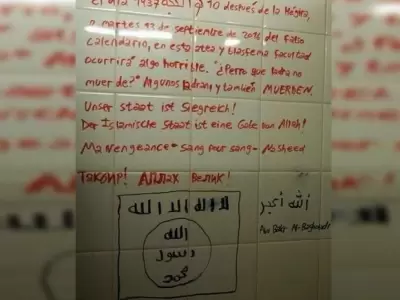 el día 1437 10 después de la Hégira,
o martes 13 de septiembre de 2016 del falso
calendario, en esta atea y blasfema facultad
ocurrirá algo horrible. "¿Perro que ladra no
muerde?" Algunos ladran y también MUERDEN.
Unser staat ist Siegreich!
Der Islamische Staat ist eine Gabe von Allah!
Ma vengeance - sang pour sang - Nasheed
Такбир! Аллах велик!
لا اله الا الله
الله
رسول
محمد
الله أكبر
Abu Bakr Al-Baghdadi